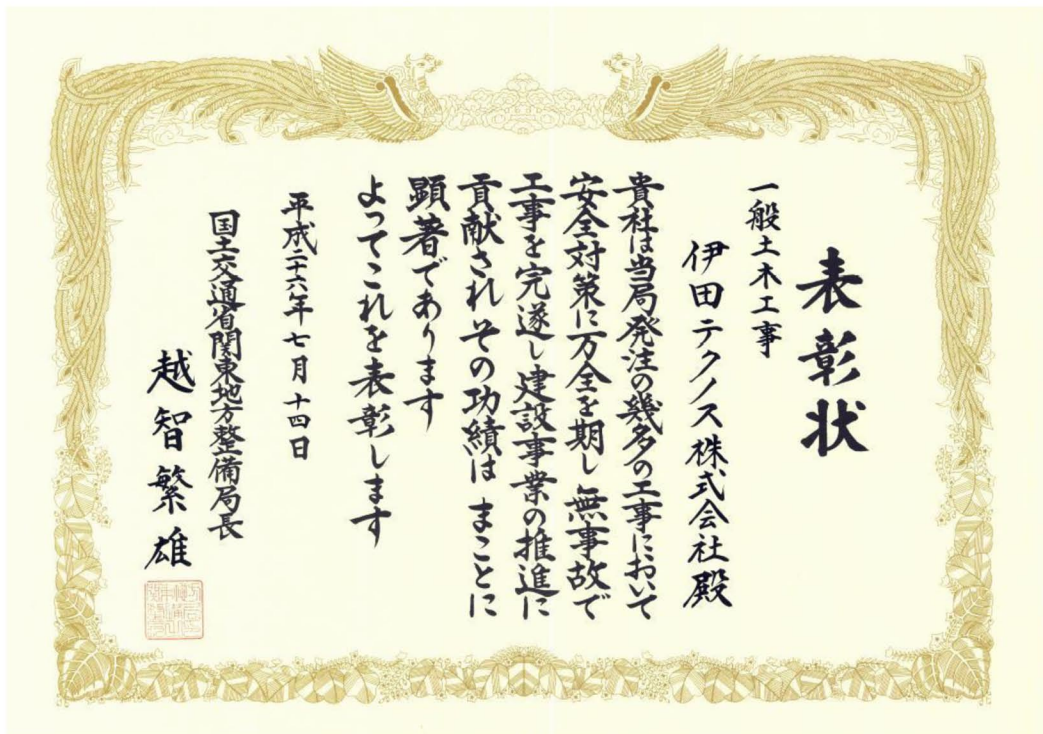 表彰状
一般土木工事
伊田テクノス株式会社殿
貴社は当局発注の幾多の工事において
安全対策に万全を期し無事故で
工事を完遂し建設事業の推進に
貢献されその功績はまことに
顕著であります
よってこれを表彰します
平成二十六年七月十四日
国土交通省関東地方整備局長
越智繁雄